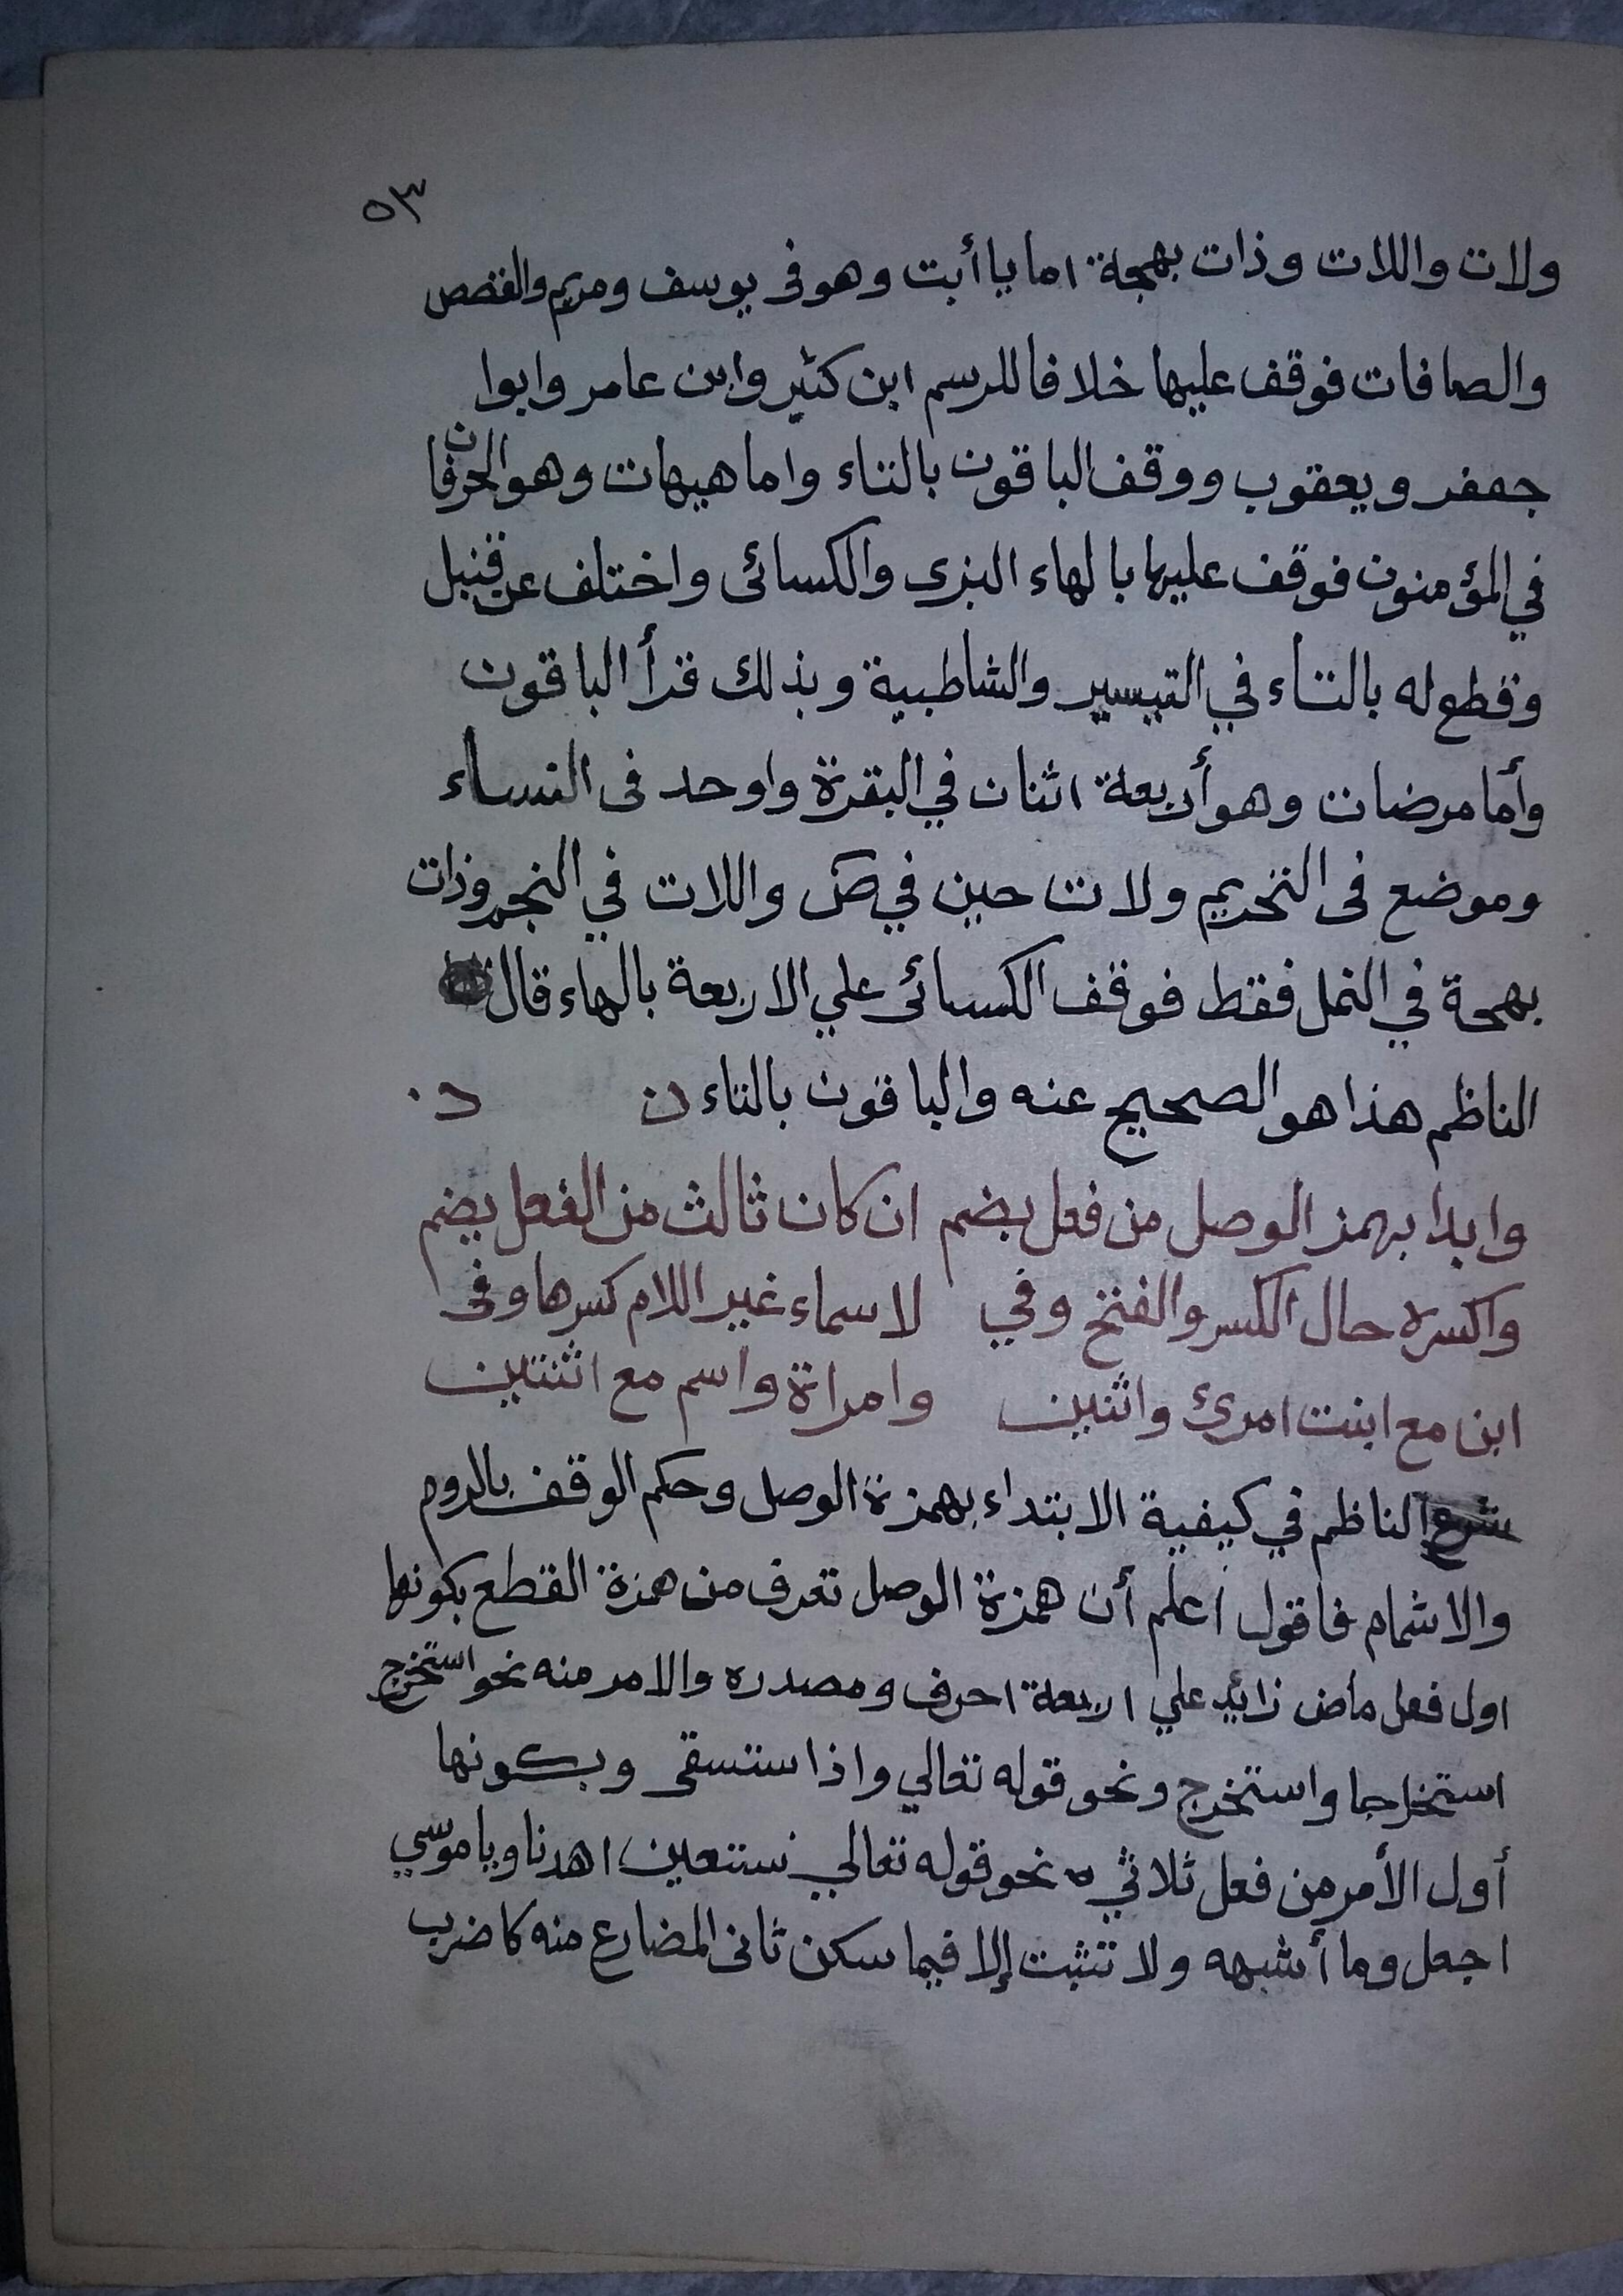 ٥٣
ولات واللات وذات بهجة اما يا أبت وهو فى يوسف ومريم والقصص
والصافات فوقف عليها خلافا للرسم ابن كثير وابن عامر وابوا
جعفر ويعقوب ووقف الباقون بالتاء واما هيهات وهو الحرفان
في المؤمنون فوقف عليها بالهاء البزى والكسائى واختلف عن قنبل
وقطع له بالتاء في التيسير والشاطبية وبذلك قرأ الباقون
وأما مرضات وهو أربعة اثنان في البقرة واوحد فى النساء
وموضع فى التحريم ولات حين في ص واللات في النجم وذات
بهجة في النمل فقط فوقف الكسائى علي الاربعة بالهاء قال
الناظم هذا هو الصحيح عنه والباقون بالتاء
وابدا بهمز الوصل من فعل بضم ان كان ثالث من الفعل يضم
واكسره حال الكسر والفتح وفي لاسماء غير اللام كسرها وفى
ابن مع ابنت امرئ واثنين وامراة واسم مع اثنتين
شرع الناظم في كيفية الابتداء بهمزة الوصل وحكم الوقف بالروم
والاشمام فاقول اعلم أن همزة الوصل تعرف من همزة القطع بكونها
اول فعل ماض زائد علي اربعة احرف ومصدره والامر منه نحو استخرج
استخراجا واستخرج ونحو قوله تعالي واذا ستسقى وبكونها
أول الأمر من فعل ثلاثي نحو قوله تعالي نستعين اهدنا ويا موسي
اجعل وما أشبهه ولا تثبت إلا فيما سكن ثانى المضارع منه كاضرب